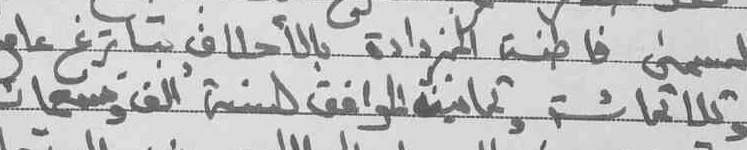 المسمى فاطنة المزدادة بالأحلاف بتاريخ عام
وثلاثمائة وثمانية الموافق لسنة ألف وتسعمائة